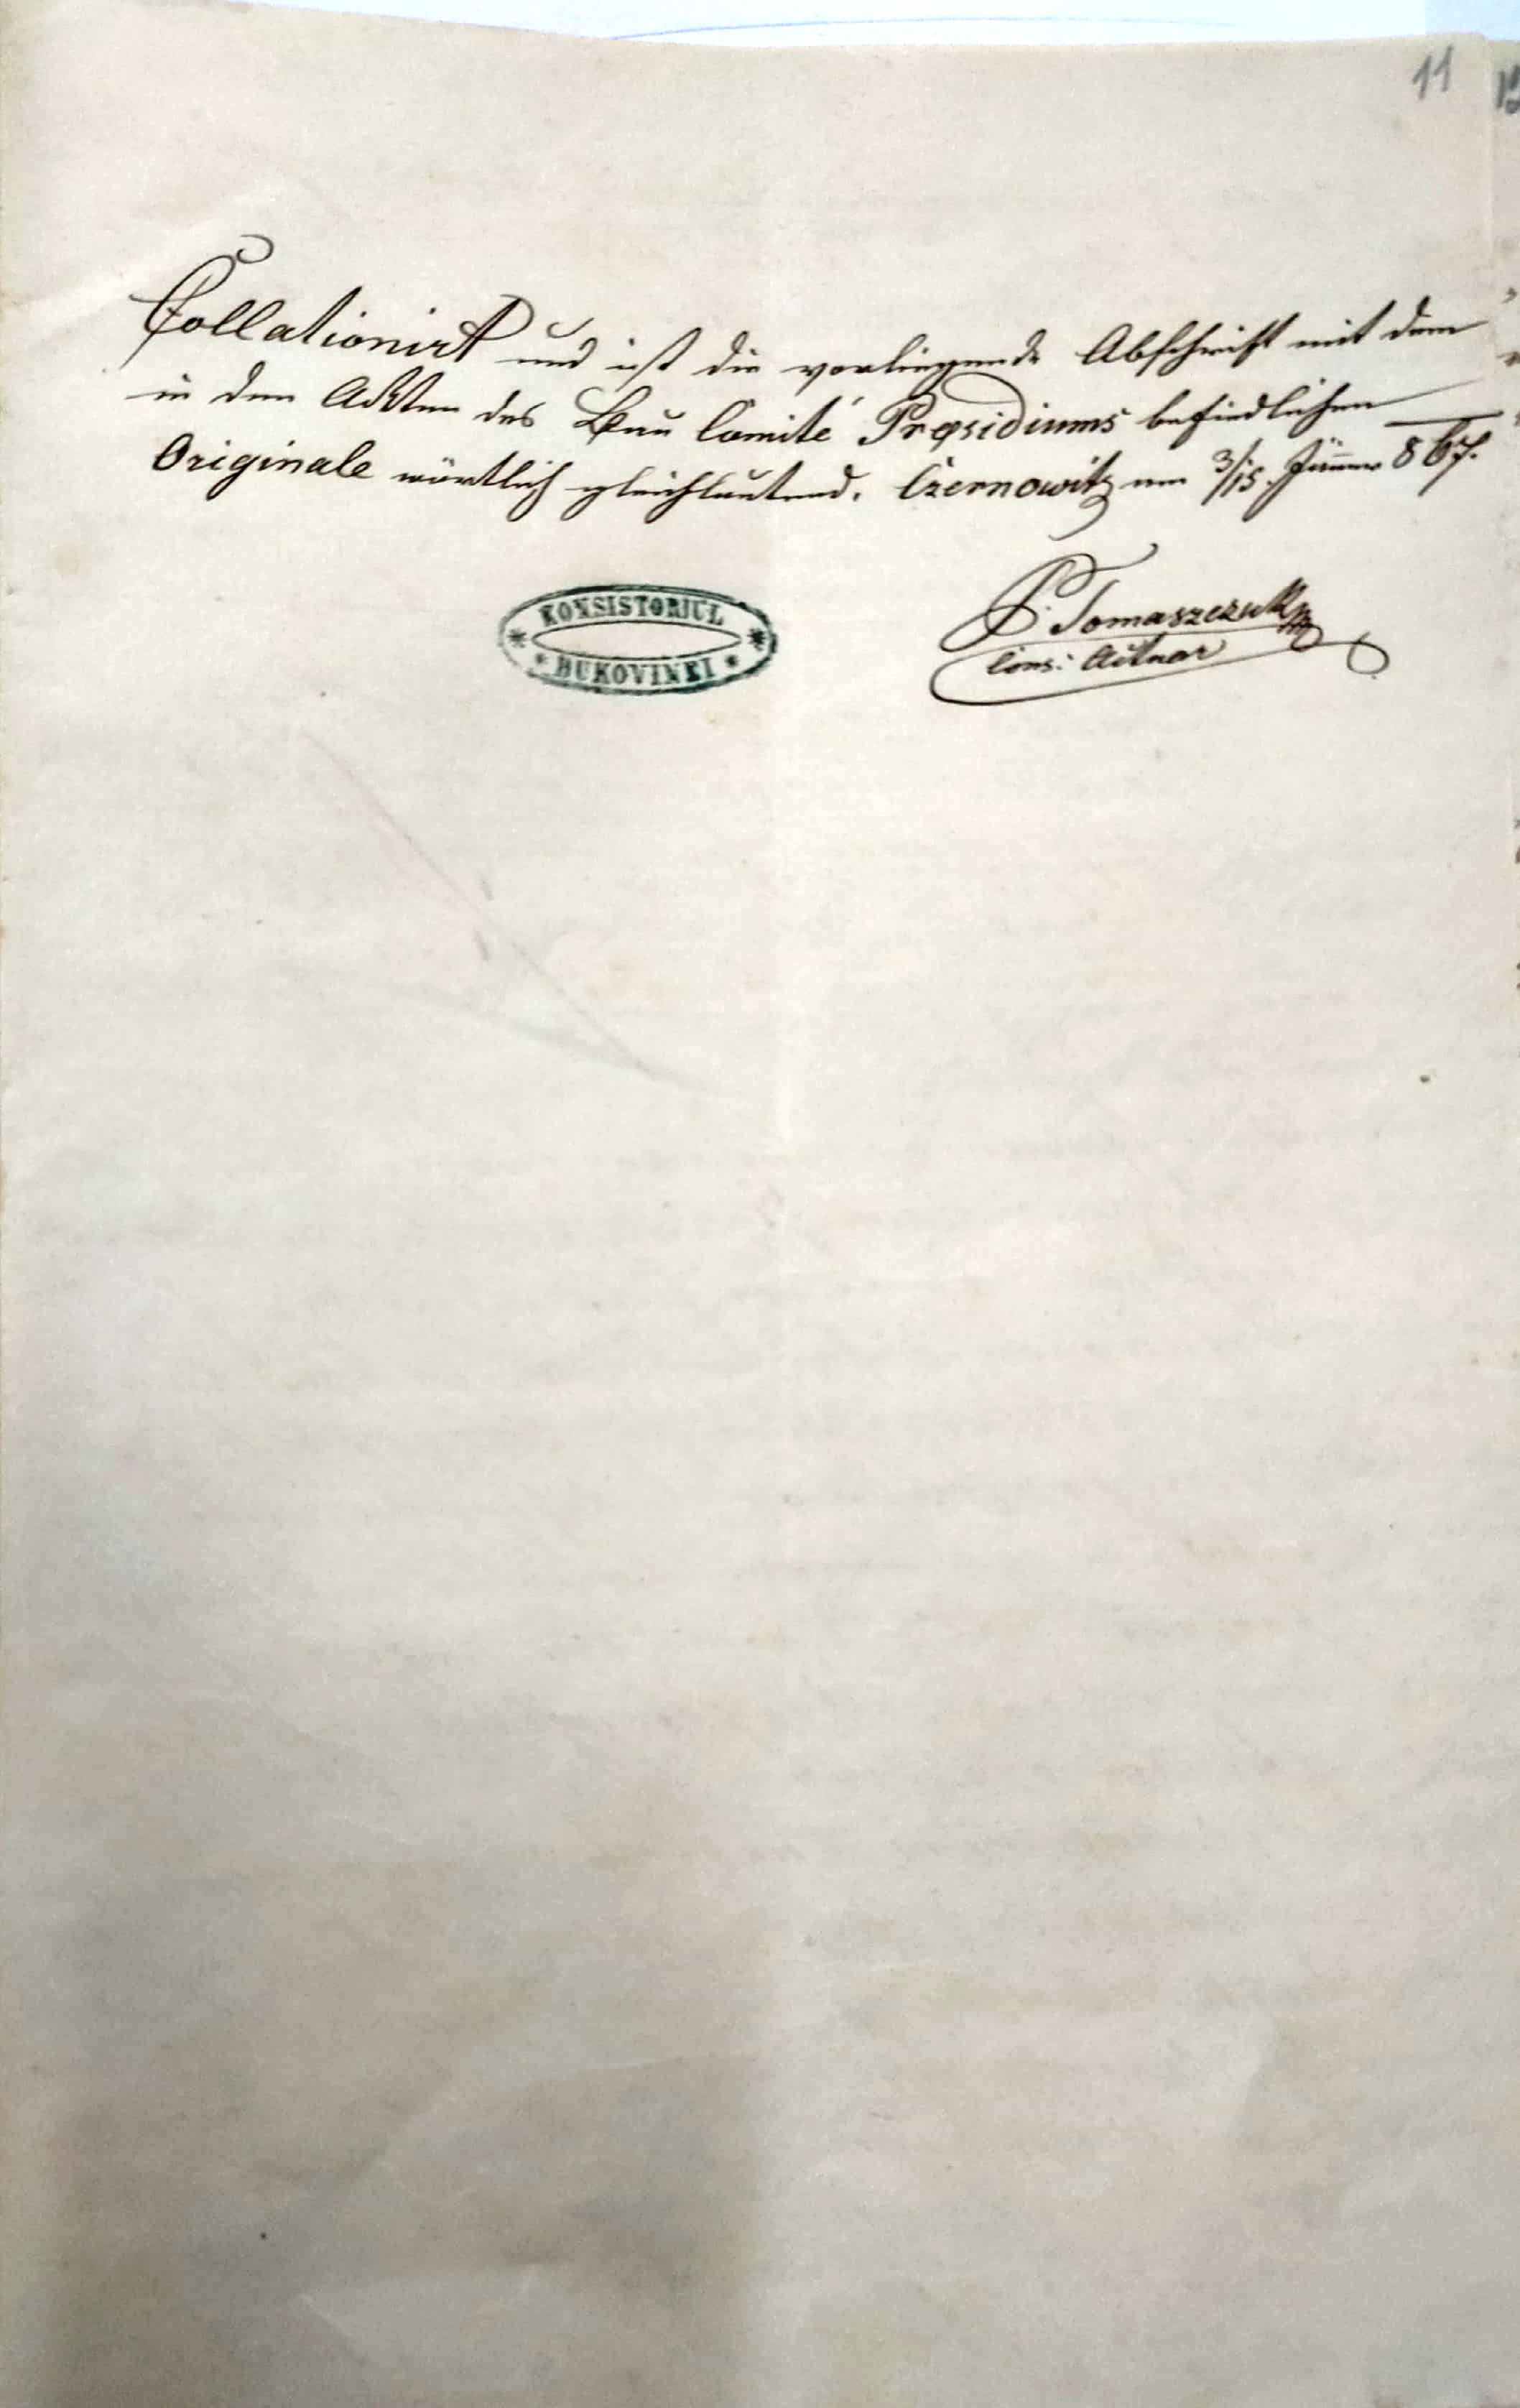 11
Collationirt und ist die vorliegende Abschrift mit dem
in den Akten des Bau Comité Præsidiums befindlichen
Originale wörtlich gleichlautend. Czernowitz am 3/15. Jänner 867.
KONSISTORIUL
BUKOVINEI
Tomaszczuk
Cons: Aktuar